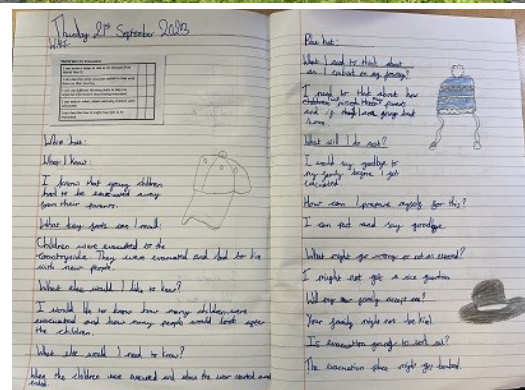 Thursday 21st September 2023
W.A.L.T:
White hat:
What I know:
I know that young children
had to be evacuated away
from their parents.
What key facts can I recall:
Children were evacuated to the
countryside. They were evacuated and had to live
with new people.
What else would I like to know?
I would like to know how many children were
evacuated and how many people would look after
the children.
What else would I need to know?
When the children were evacuated and when the war started and
ended.
Blue hat:
What I need to think about
as I embark on my journey?
I need to think about how
children missed their parents
and if they'll ever go back
home.
What will I do next?
I would say goodbye to
my family before I get
evacuated
How can I prepare myself for this?
I can pack and say goodbye.
What might go wrong or not as planned?
I might not get a nice guardian
Will my family accept me?
Your family might not be kind.
Is evacuation going to work out?
The evacuation place might get bombed.